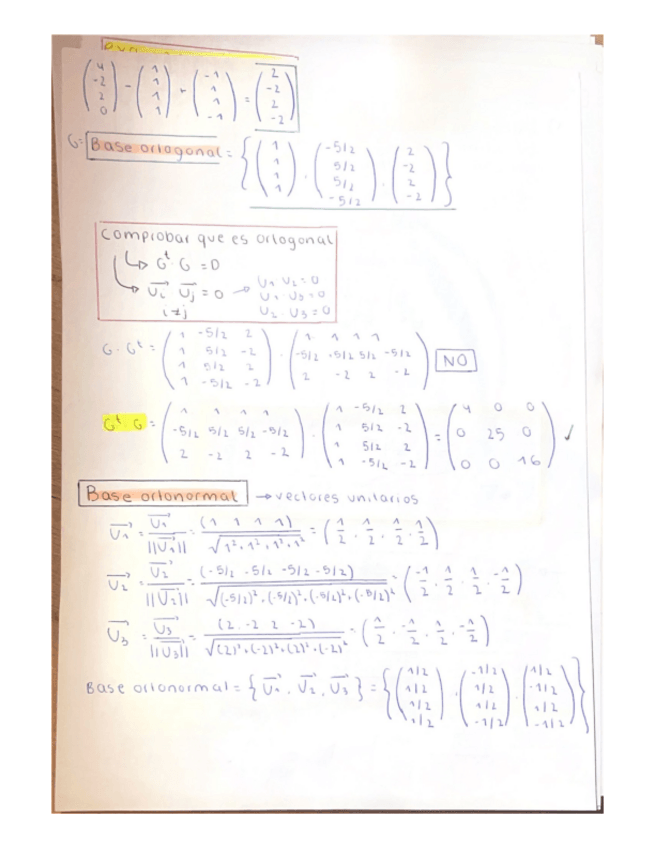 (4 -2 2 0) - (1 1 1 1) + (-1 1 1 -1) = (2 -2 2 -2)
G = Base ortogonal = {(1 1 1 1), (-5/2 5/2 5/2 -5/2), (2 -2 2 -2)}
Comprobar que es ortogonal
↳ Gᵗ · G = D
↳ U⃗i U⃗j = 0 → U1 U2 = 0
i ≠ j U1 · U3 = 0
U2 · U3 = 0
G · Gᵗ = (1 -5/2 2; 1 5/2 -2; 1 5/2 2; 1 -5/2 -2) · (1 1 1 1; -5/2 5/2 5/2 -5/2; 2 -2 2 -2) NO
Gᵗ · G = (1 1 1 1; -5/2 5/2 5/2 -5/2; 2 -2 2 -2) · (1 -5/2 2; 1 5/2 -2; 1 5/2 2; 1 -5/2 -2) = (4 0 0; 0 25 0; 0 0 16) ✓
Base ortonormal → vectores unitarios
U⃗1 = U⃗1 / ||U⃗1|| = (1 1 1 1) / √1²+1²+1²+1² = (1/2, 1/2, 1/2, 1/2)
U⃗2 = U⃗2 / ||U⃗2|| = (-5/2 -5/2 -5/2 -5/2) / √(-5/2)²+(-5/2)²+(-5/2)²+(-5/2)² = (-1/2, 1/2, 1/2, -1/2)
U⃗3 = U⃗3 / ||U⃗3|| = (2 -2 2 -2) / √(2)²+(-2)²+(2)²+(-2)² = (1/2, -1/2, 1/2, -1/2)
Base ortonormal = {U⃗1, U⃗2, U⃗3} = {(1/2 1/2 1/2 1/2), (-1/2 1/2 1/2 -1/2), (1/2 -1/2 1/2 -1/2)}